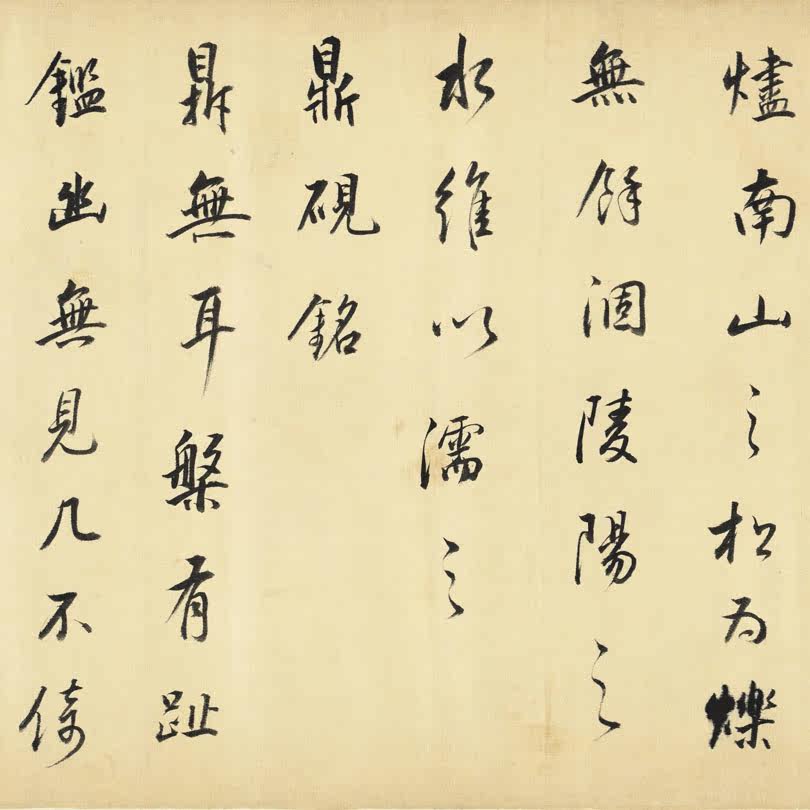 燼南山之松為爍
無餘涸陵陽之
水維以濡之
鼎硯銘
鼎無耳槃有趾
鑑幽無見几不倚